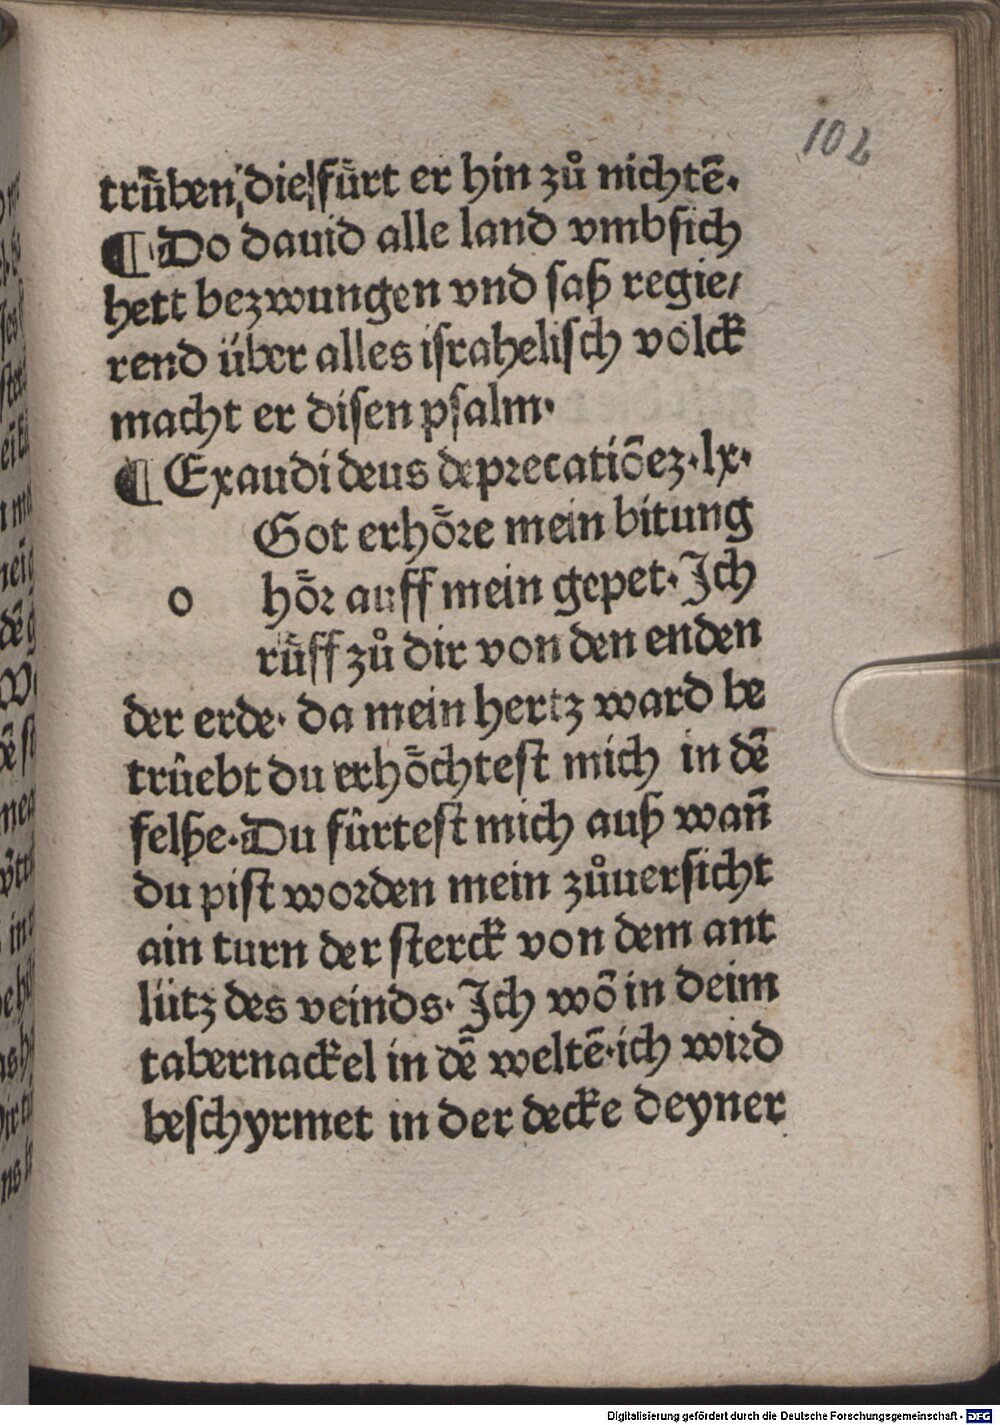 102
trüben die fürt er hin zů nichtē.
¶ Do dauid alle land vmbsich
hett bezwungen vnd saß regie/
rend über alles israhelisch volck
macht er disen psalm.
¶ Exaudi deus deprecatiōez. lx.
Got erhöre mein bitung
o hör auff mein gepet. Ich
rüff zů dir von den enden
der erde. da mein hertz ward be
trûebt du erhöchtest mich in dē
felße. Du fûrtest mich auß wañ
du pist worden mein zůuersicht
ain turn der sterck von dem ant
lütz des veinds. Ich wō in deim
tabernackel in dē weltē. ich wird
beschyrmet in der decke deyner
Digitalisierung gefördert durch die Deutsche Forschungsgemeinschaft - DFG